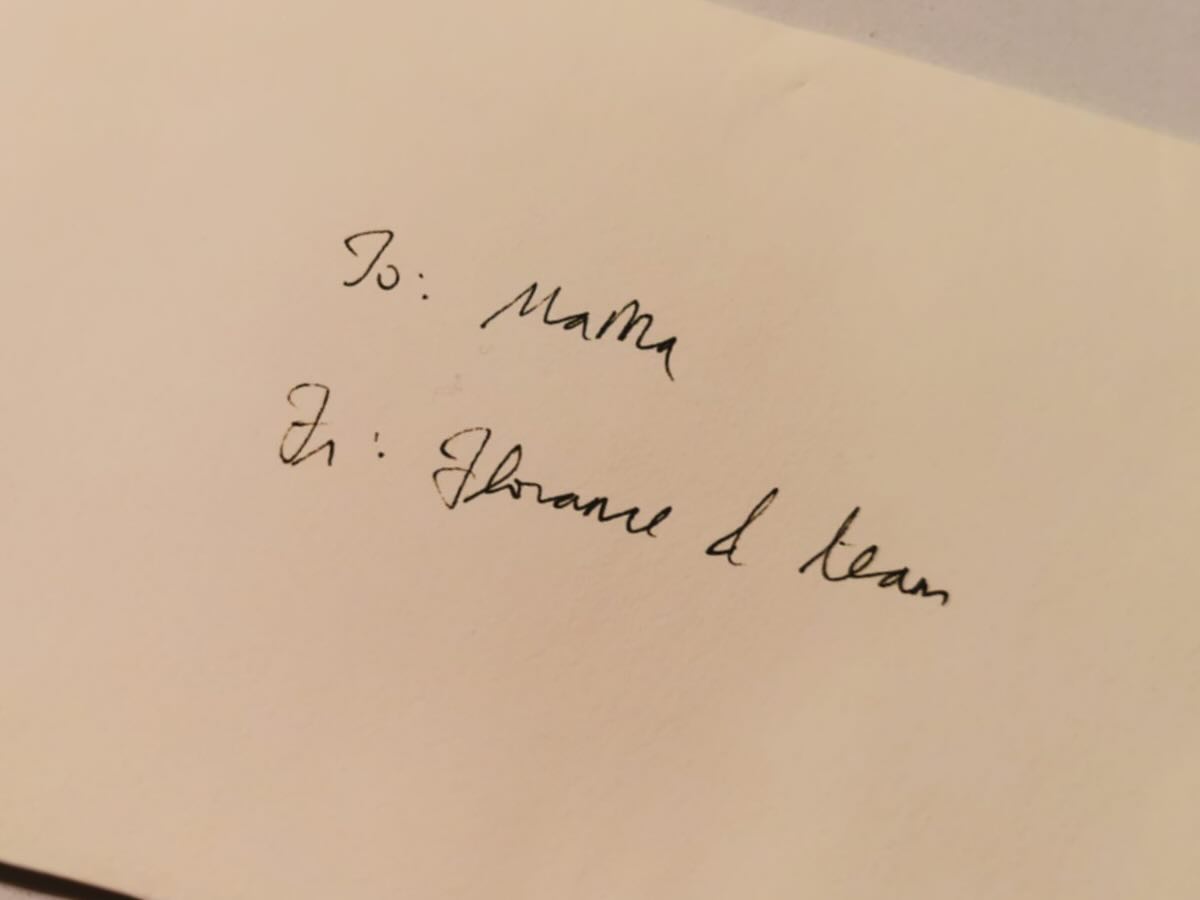 To: Mama
Fr: Florance & team